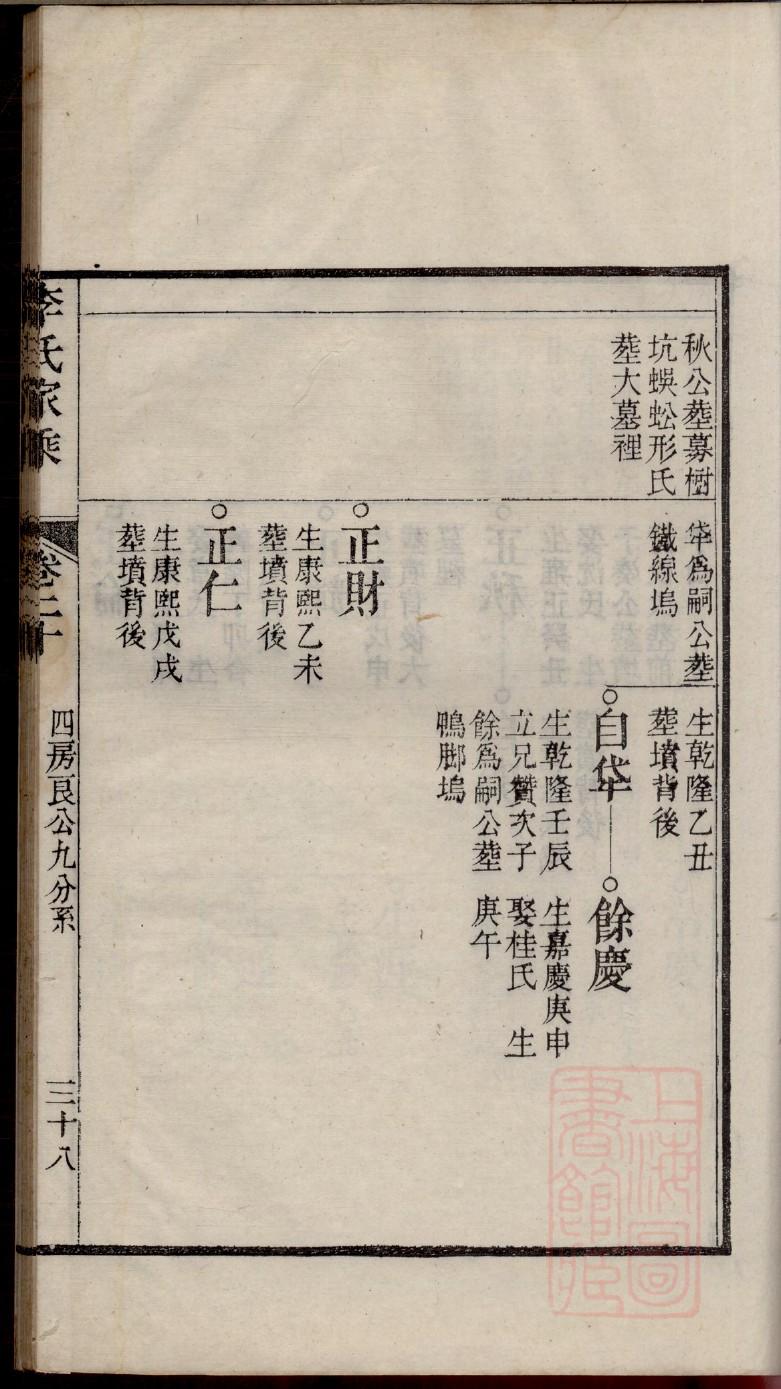 秋公塟募樹
坑蜈蚣形氏
塟大墓裡
牮爲嗣公塟
鐵線塢
生乾隆乙丑
塟墳背後
自牮
餘慶
生乾隆壬辰
立兄贊次子
餘爲嗣公塟
鴨脚塢
生嘉慶庚申
娶桂氏　生
庚午
正財
生康熙乙未
塟墳背後
正仁
生康熙戊戌
塟墳背後
李氏家乘
卷二十
四房良公九分系
三十八
上海圖
書館藏